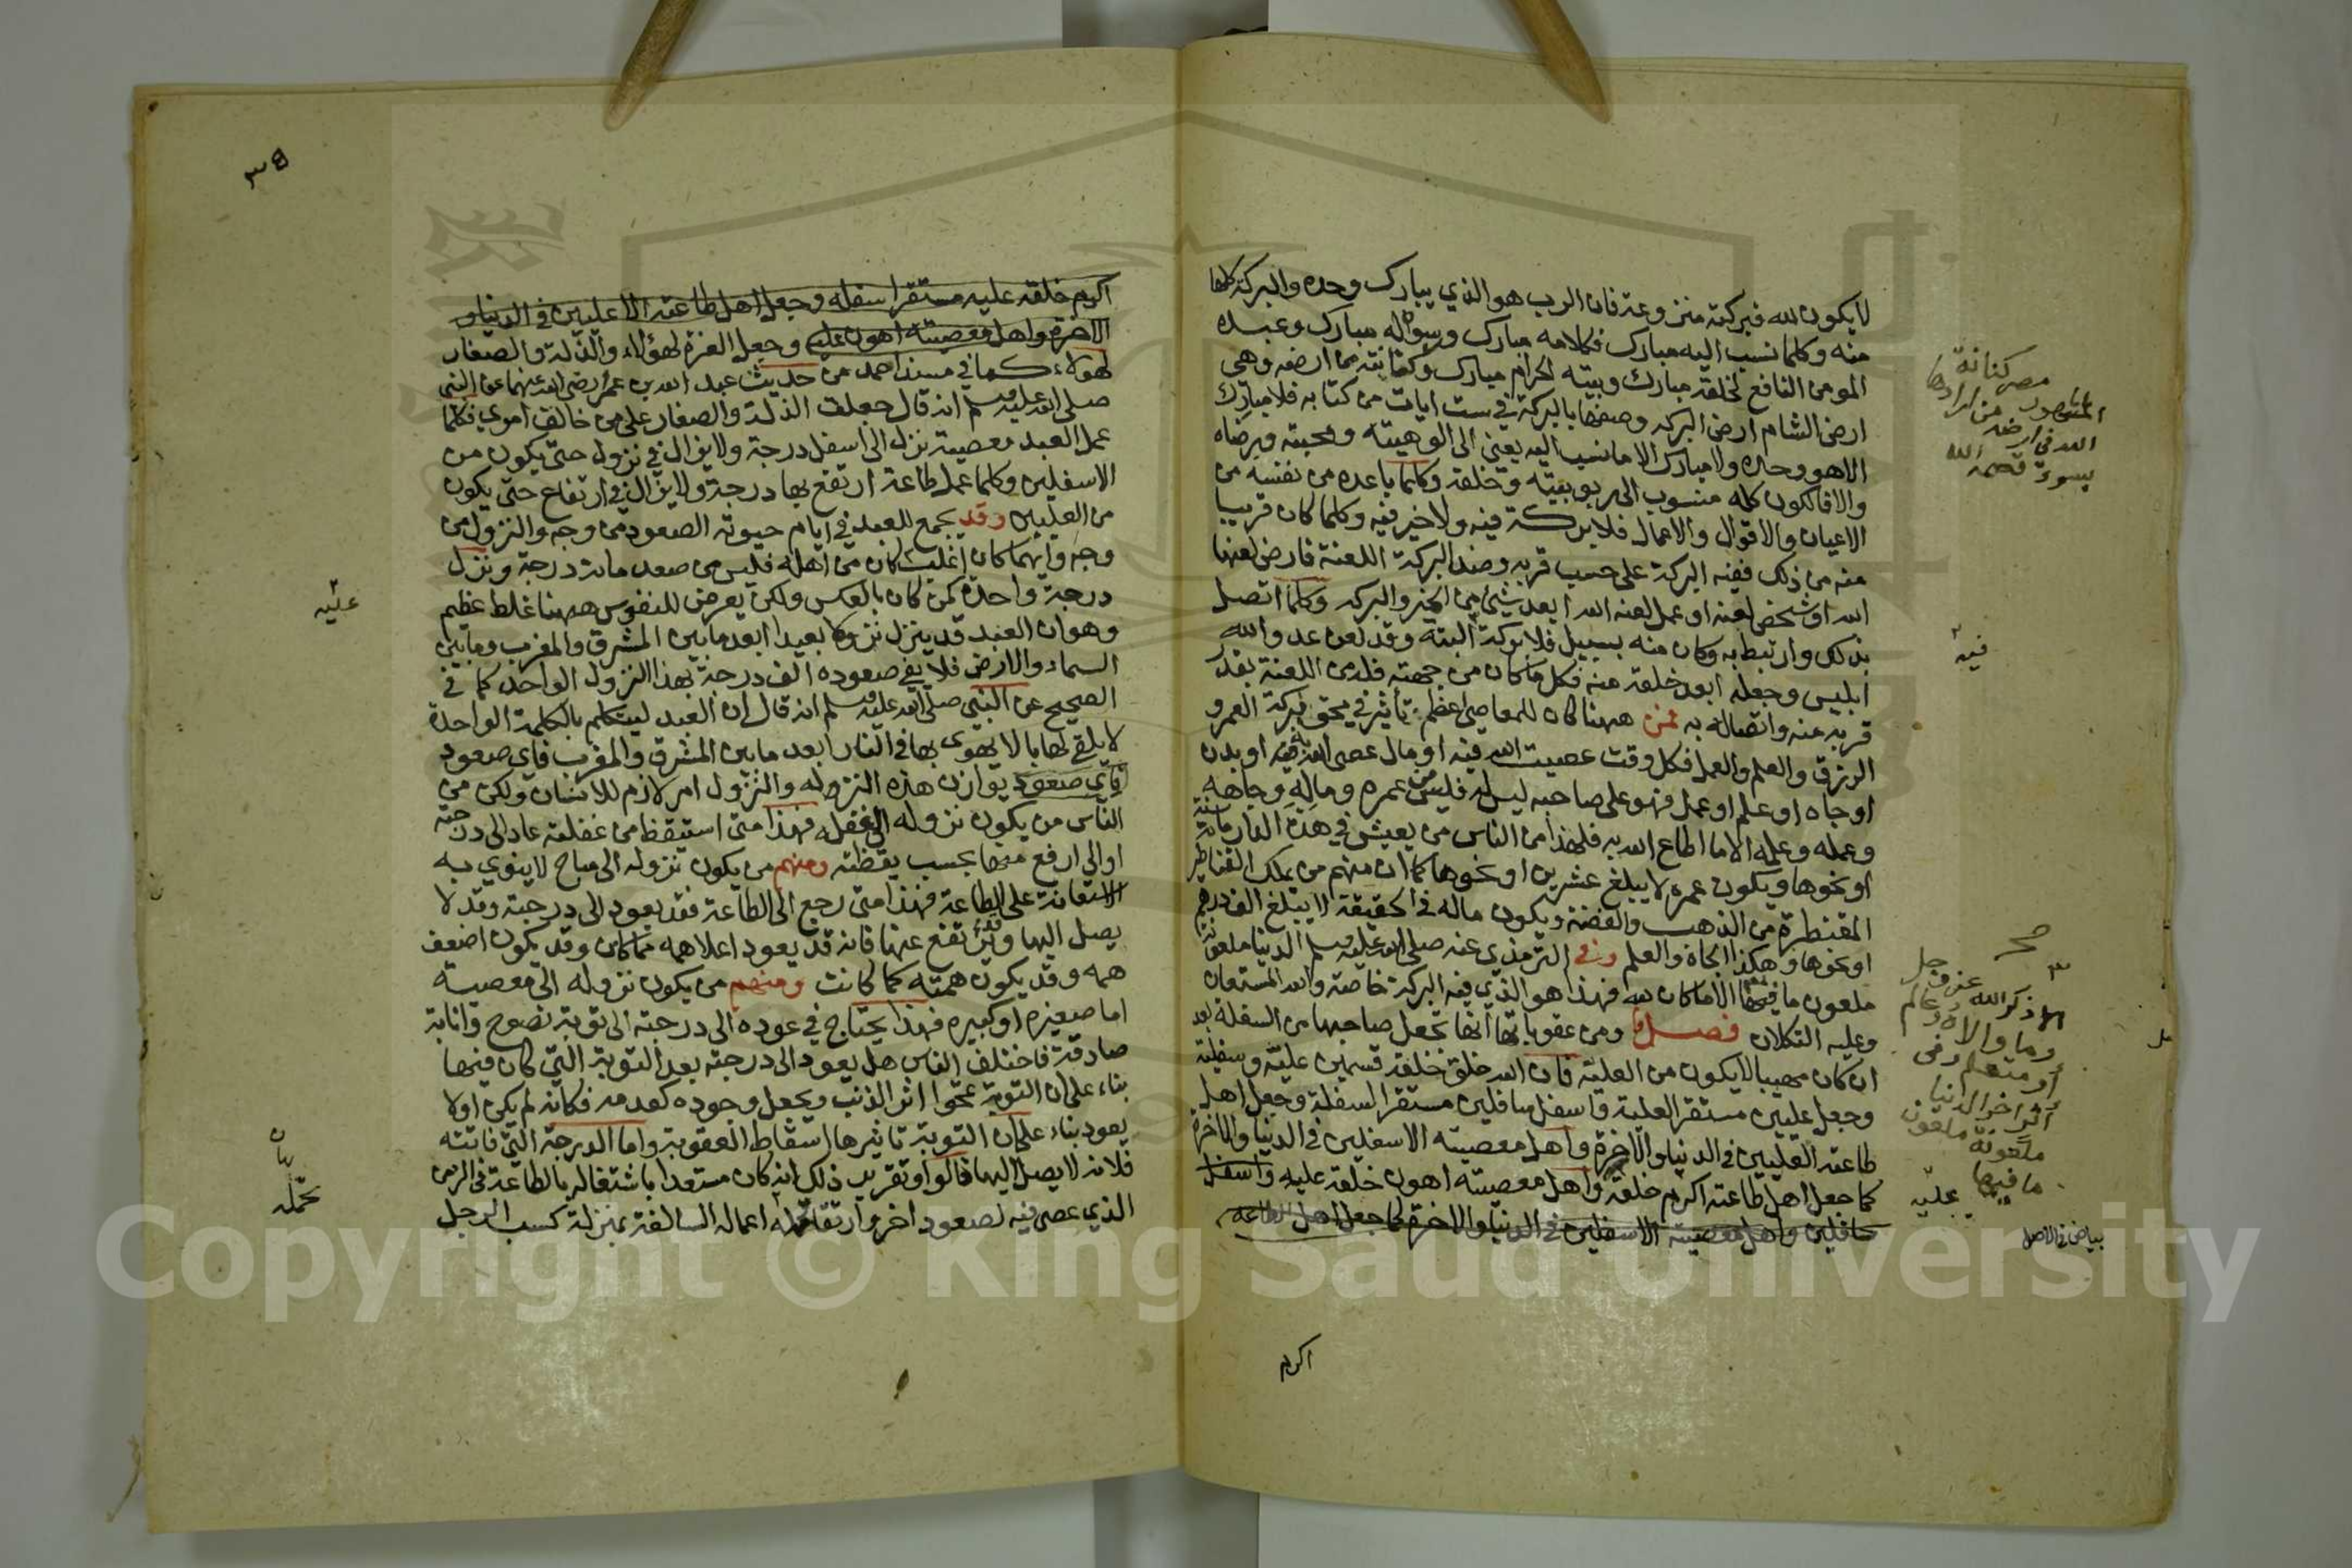 لا يكون لله فبركته منزوعة فان الرب هو الذي يبارك وحده والبركة كلها
منه وكلما نسب اليه مبارك فكلامه مبارك ورسوله مبارك وعبده
المومن النافع لخلقه مبارك وبيته الحرام مبارك وكنانته من ارضه وهي
ارض الشام ارض البركة وصفها بالبركة في ست ايات من كتابه فلا مبارك
الا هو وحده ولا مبارك الا ما نسب اليه يعني الى الوهيته ومحبته ورضاه
والا فالكون كله منسوب الى ربوبيته وخلقه وكلما باعده من نفسه من
الاعيان والاقوال والاعمال فلا بركة فيه ولا خير فيه وكلما كان قريبا
منه من ذلك ففيه البركة على حسب قربه وضد البركة اللعنة فارض لعنها
الله او شخص لعنه او عمل لعنه الله ابعد شيئ من الخير والبركه وكلما اتصل
بذلك وارتبط به وكان منه بسبيل فلا بركة البتة وقد لعن عدو الله
ابليس وجعله ابعد خلقه منه فكل ما كان من جهته فله من اللعنة بقدر
قربه منه واتصاله به فمن ههنا كان للمعاصي اعظم تأثير في محق بركة العمر و
الرزق والعلم والعمل فكل وقت عصيت الله فيه او مال عصي الله به او بدن
او جاه او علم او عمل فهو على صاحبه ليس له فليس من عمره وماله وجاهه
وعمله وعلمه الا ما اطاع الله به فلهذا من الناس من يعيش في هذه الدار مائة سنة
او نحوها ويكون عمره لا يبلغ عشرين او نحوها كما ان منهم من يملك القناطير
المقنطرة من الذهب والفضة ويكون ماله في الحقيقة لا يبلغ الف درهم
او نحوها وهكذا الجاه والعلم وفي الترمذي عنه صلى الله عليه وسلم الدنيا ملعونة
ملعون ما فيها الا ما كان لله فهذا هو الذي فيه البركة خاصة والله المستعان
وعليه التكلان فصل ومن عقوباتها انها تجعل صاحبها من السفلة بعد
ان كان مهيبا لا يكون من العلية فان الله خلق خلقه قسمين علية وسفلة
وجعل عليين مستقر العلية واسفل سافلين مستقر السفلة وجعل اهل
طاعته العليين في الدنيا والاخرة واهل معصيته الاسفلين في الدنيا والاخرة
كما جعل اهل طاعته اكرم خلقه واهل معصيته اهون خلقه عليه واسفل
سافلين واهل معصيته الاسفلين في الدنيا والاخرة كما جعل اهل الطاعة
اكرم
مصر كنانة
الله في ارضه من ارادها
بسوء قصمه الله
فيه
صح
الا ذكر الله عز وجل
وما والاه وعالم
أو متعلم وفي
أثر اخر الدنيا
ملعونة ملعون
ما فيها
علية
بياض في الاصل
٣٤
اكرم خلقه عليه مستقر اسفله وجعل اهل طاعته الاعليين في الدنيا و
الاخرة واهل معصيته اهون عليه وجعل العزة لهؤلاء والذلة والصغار
لهولاء كما في مسند احمد من حديث عبد الله بن عمر رضي الله عنهما عن النبي
صلى الله عليه وسلم انه قال جعلت الذلة والصغار على من خالف امري فكلما
عمل العبد معصية نزل الى اسفل درجة ولا يزال في نزول حتى يكون من
الاسفلين وكلما عمل طاعة ارتفع بها درجة ولا يزال في ارتفاع حتى يكون
من العليين وقد يجمع للعبد في ايام حيوته الصعود من وجه والنزول من
وجه وايهما كان اغلب كان من اهله فليس من صعد مائة درجة ونزل
درجة واحدة كمن كان بالعكس ولكن يعرض للنفوس ههنا غلط عظيم
وهو ان العبد قد ينزل نزولا بعيدا ابعد ما بين المشرق والمغرب وما بين
السماء والارض فلا يفي صعوده الف درجة بهذا النزول الواحد كما في
الصحيح عن النبي صلى الله عليه وسلم انه قال ان العبد ليتكلم بالكلمة الواحدة
لا يلقي لها بالا يهوى بها في النار ابعد ما بين المشرق والمغرب فاي صعود
فاي صعود يوازن هذه النزوله والنزول امر لازم للانسان ولكن من
الناس من يكون نزوله الى غفله فهذا متى استيقظ من غفلته عاد الى درجته
او الى ارفع منها بحسب يقظته ومنهم من يكون نزوله الى مباح لا ينوي به
الاستعانة على الطاعة فهذا متى رجع الى الطاعة فقد يعود الى درجته وقد لا
يصل اليها وقد يرتفع عنها فانه قد يعود اعلا همه مما كان وقد يكون اضعف
همه وقد يكون همته كما كانت ومنهم من يكون نزوله الى معصية
اما صغيره او كبيره فهذا يحتاج في عوده الى درجته الى توبة نصوح وانابة
صادقة فاختلف الناس هل يعود الى درجته بعد التوبة التي كان فيها
بناء على ان التوبة تمحوا اثر الذنب ويجعل وجوده كعدمه فكانه لم يكن او لا
يعود بناء على ان التوبة تاثيرها اسقاط العقوبة واما الدرجة التي فاتته
فلانه لا يصل اليها قالوا وتقرير ذلك انه كان مستعدا باشتغاله بالطاعة في الزمن
الذي عصى فيه لصعود اخر وارتقا بجملة اعماله السالفة بمنزلة كسب الرجل
عليه
بيان
بجملة
Copyright © King Saud University